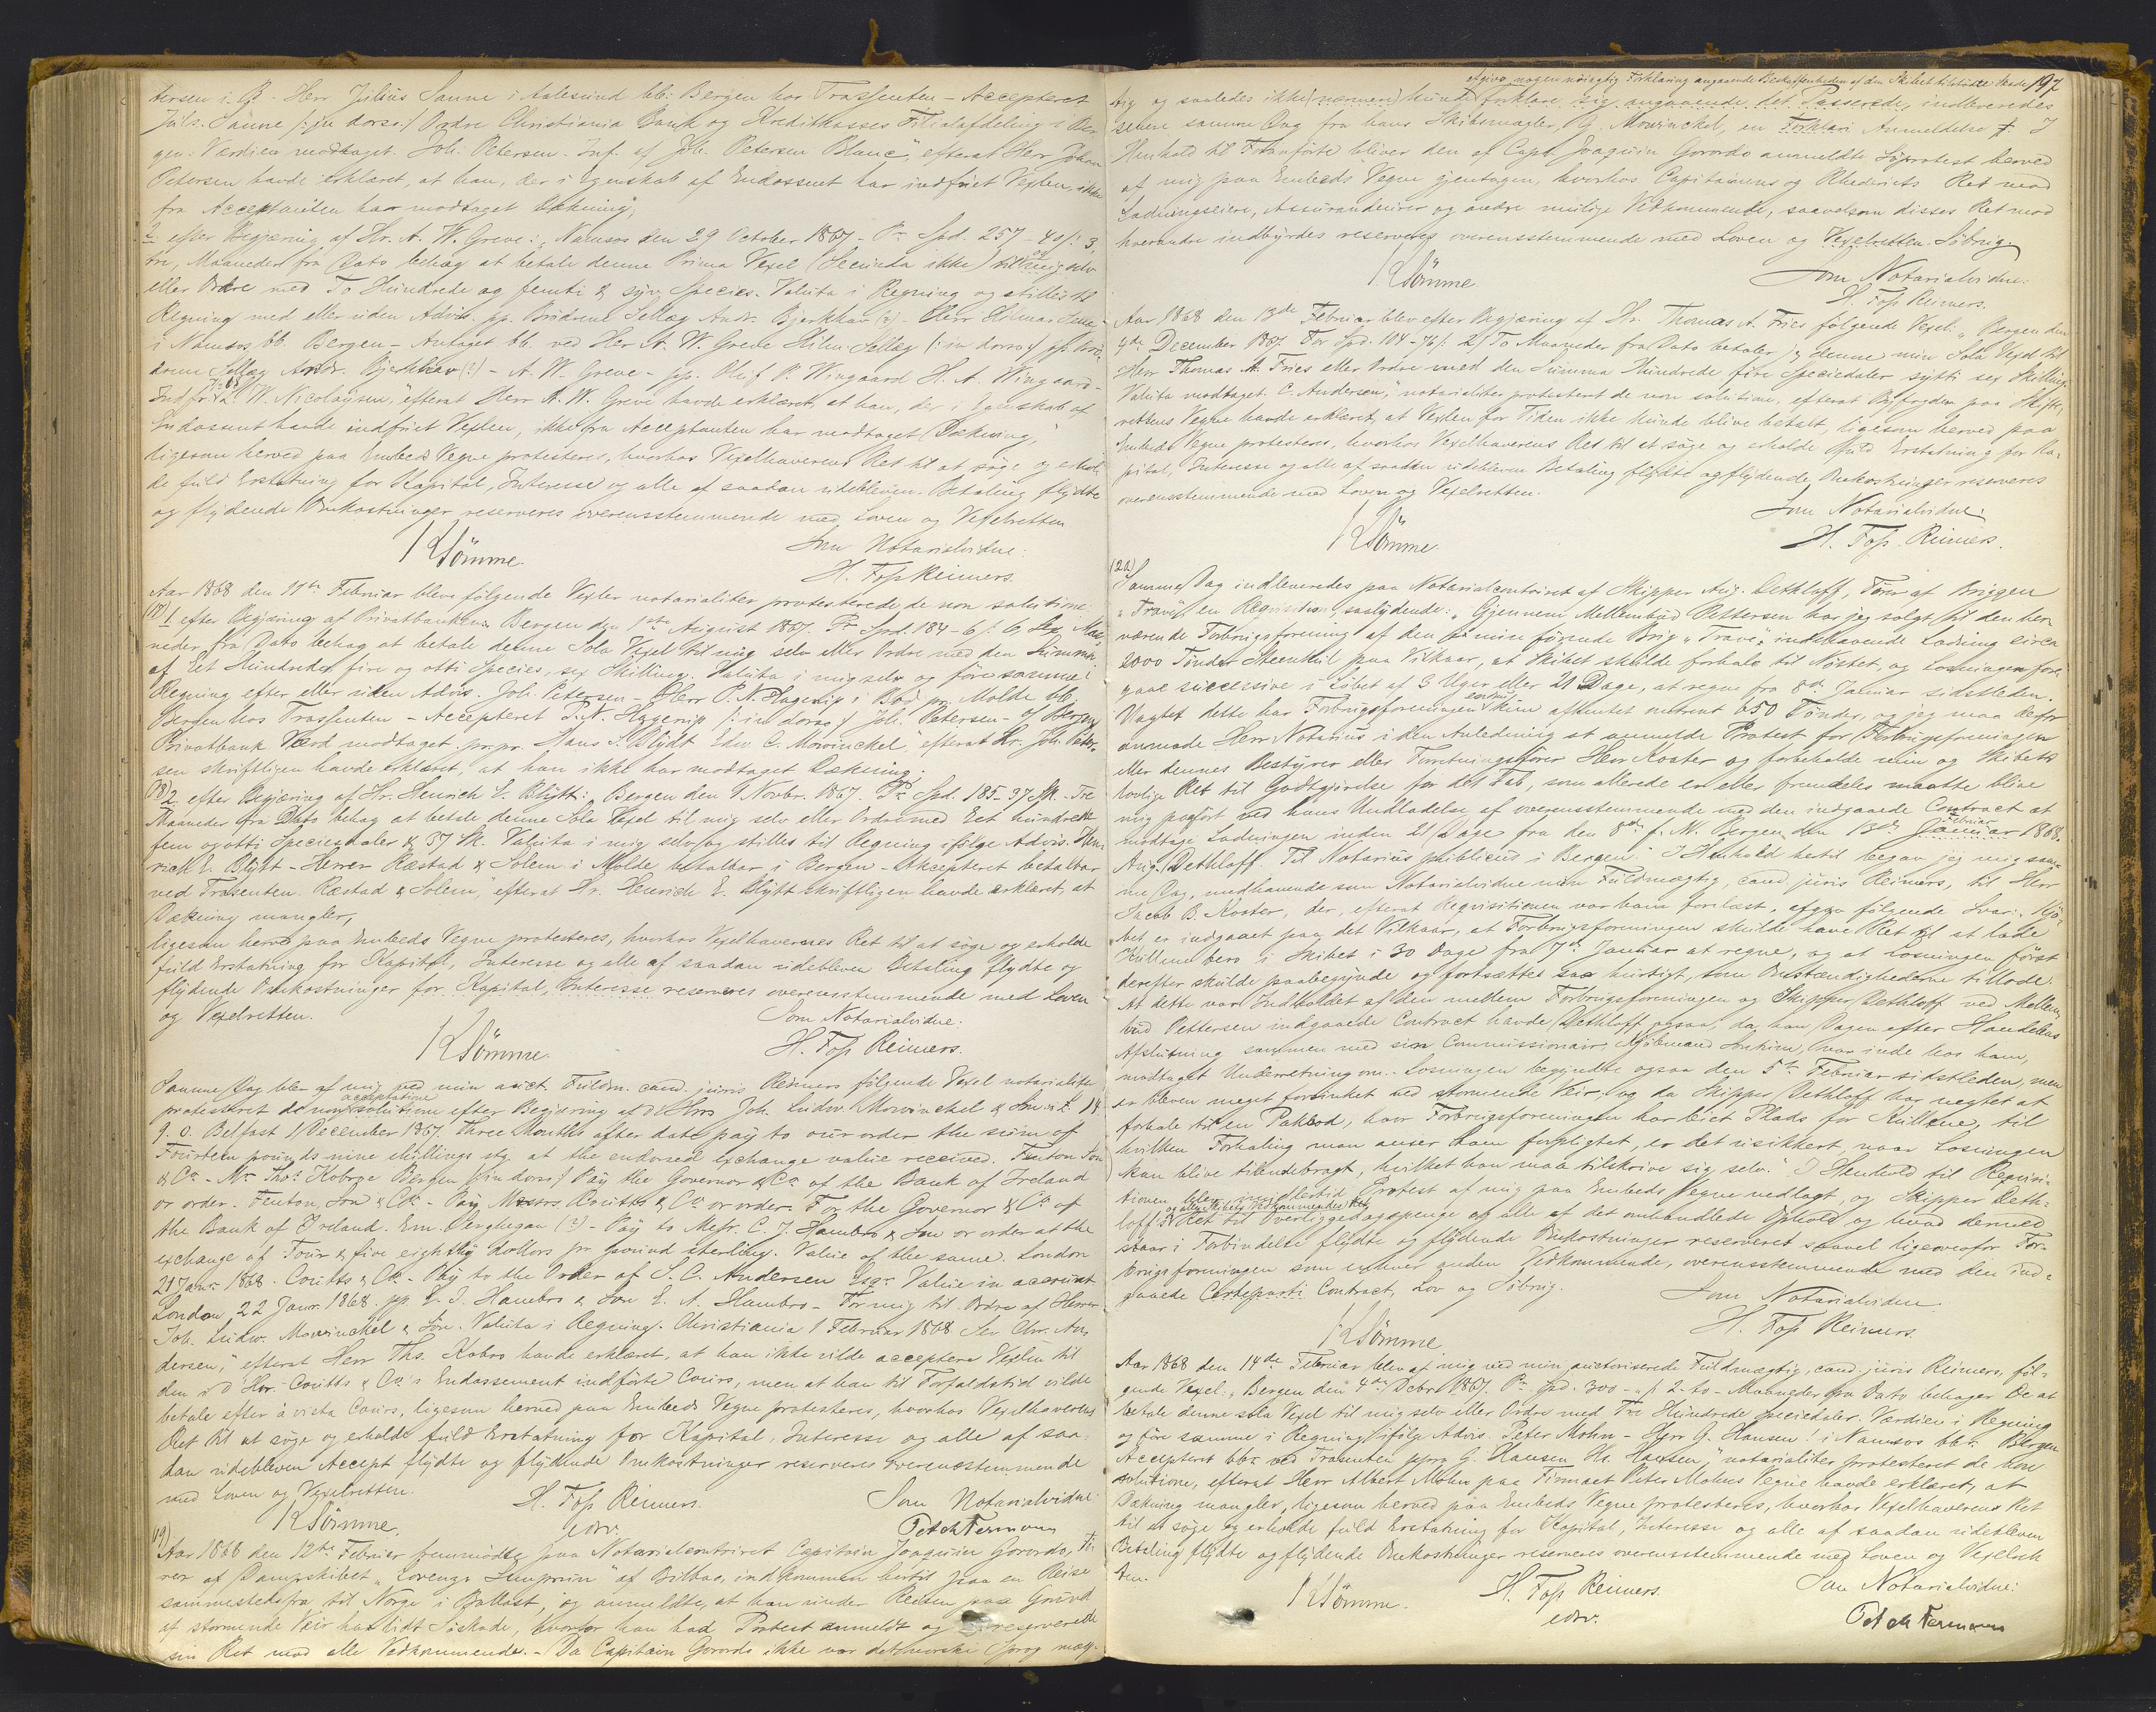 tersen i B. Herr Julius Sanne i Aalesund bb. Bergen hos Trassenten - Accepteret
Juls. Sanne /: in dorso :/ Ordre Christiania Bank og Kreditkasses Filialafdeling i Ber
gen. Værdien modtaget. Joh. Petersen. Inf. af Joh. Petersen Blanc", efterat Herr Johan
Petersen havde erklæret, at han, der i Egenskab af Endossent har indfriet Vexlen, ikke
fra Acceptanten har modtaget Dækning,
2 efter Begjæring af Hr. A. W. Greve: "Namsos den 29 October 1867 - Pr Spd. 257 - 40 /: 3
tre, Maaneder fra Dato behag at betale denne Prima Vexel (Secunda ikke) til mig selv
eller Ordre med To Hundrede og femti & syv Species. Valuta i Regning og stilles til
Regning med eller uden Advis. pp. Brødrene Sellæg Andr. Bjerkhav (?) - Herr Hilmar Sellæg
i Namsos bb. Bergen - Antaget bb. ved Her A. W. Greve Hilm. Sellæg (: in dorso :/ pp. Brö-
drene Sellæg Andr. Bjerkhav (?) - A. W. Greve - pp. Oluf P. Wingaard H. A. Wingaard -
Indfr W. Nicolaysen," efterat Herr A. W. Greve havde erklæret, at han, der i Egenskab af
Endossent havde indfriet Vexlen, ikke fra Acceptanten har modtaget Dækning,
ligesom herved paa Embeds Vegne protesteres, hvorhos Vexelhaverens Ret til at søge og erhol-
de fuld Erstatning for Kapital, Interesse og alle af saadan udebleven Betaling flydte
og flydende Omkostninger reserveres overensstemmende med Loven og Vexelretten
Som Notarialvidne:
KSömme. H. Foss Reimers.
Aar 1868 den 11te Februar bleve følgende Vexler notarialiter protesterede de non solutione:
1 efter Begjæring af Privatbanken: Bergen den 1ste August 1867. Pr Spd. 184 - 6 /: 6, Sex Maa-
neder fra Dato behag at betale denne Sola Vexel til mig selv eller Ordre med den Summa
af Eet Hundrede fire og otti Species, sex Skilling. Valuta i mig selv og före samme i
Regning efter eller uden Advis. Joh. Petersen - Herr P. N. Hagerup i Bod pr. Molde bb.
Bergen hos Trassenten - Accepteret P. N. Hagerup /: in dorso :/ Joh. Petersen - af Bergens
Privatbank Værd modtaget. pr. pr. Hans S. Blydt Edw. C. Mowinckel", efterat Hr. Joh. Peter-
sen skriftligen havde erklæret, at han ikke har modtaget Dækning;
2 efter Begjæring af Hr. Henrich E. Blytt: "Bergen den 9 Novbr. 1867. Pr Spd. 185 - 37 Sk. Tre
Maaneder fra Dato behag at betale denne Sola Vexel til mig selv eller Ordre med Eet hundrede
fem og otti Speciesdaler & 37 Sk. Valuta i mig selv og stilles til Regning ifølge Advis. Hen-
rich E. Blytt - Herrer Ræstad & Solem i Molde betalbar i Bergen - Accepteret betalbar
ved Trassenten. Ræstad & Solem", efterat Hr. Henrich E. Blytt skriftligen havde erklæret, at
Dækning mangler,
ligesom herved paa Embeds Vegne protesteres, hvorhos Vexelhaverenes Ret til at søge og erholde
fuld Erstatning for Kapital, Interesse og alle af saadan udebleven Betaling flydte og
flydende Omkostninger for Kapital, Interesse reserveres overensstemmende med Loven
og Vexelretten. Som Notarialvidne.
KSömme. H. Foss Reimers.
Samme Dag blev af mig ved min auct. Fuldm. cand. juris Reimers følgende Vexel notarialiter
acceptatione
protesteret de non solutione efter Begjæring af D'Hrr Joh. Ludw. Mowinckel & Søn: £ 14
9. 0. Belfast 1 December 1867. Three Months after date pay to our order the sum of
Fourteen pounds nine shillings stg. at the endorsed exchange value received. Fenton Son
& Co. - Mr. Thos Kobroe Bergen /: in dorso :/ Pay the Governor & Co of the Bank of Ireland
or order. Fenton, Son & Co. - Pay Messrs. Coutts & Co. or order. For the Governor & Co of
the Bank of Ireland. Em. Geoghegan (?) - Pay to Messr. C. J. Hambro & Son or order at the
exchange of Four & five eightstg dollars pr. pound sterling. Value of the same. London
21 Janr. 1868. Coutts & Co. - Pay to the Order of S. C. Andersen Esqr. Value in account
London 22 Janr. 1868. pp. C. J. Hambro & Son E. A. Hambro - For mig til Ordre af Herrer
Joh. Ludw. Mowinckel & Søn. Valuta i Regning. Christiania 1 Februar 1868 Sev Chr. An-
dersen," efterat Herr Ths. Kobro havde erklæret, at han ikke vilde acceptere Vexlen til
den i D'Hrr. Coutts & Co.'s Endossement indførte Cours, men at han til Forfaldstid vilde
betale efter a vista Cours, ligesom herved paa Embeds Vegne protesteres, hvorhos Vexelhaverens
Ret til at søge og erholde fuld Erstatning for Kapital, Interesse og alle af saa-
dan udebleven Accept flydte og flydende Omkostninger reserveres overensstemmende
med Loven og Vexelretten. H. Foss Reimers. Som Notarialvidne:
KSömme.
19)
Aar 1868 den 12te Februar fremmødte paa Notarialcontoiret Capitain Joaquin Gorordo, Fö-
rer af Dampskibet "Lorenzo Semprun" af Bilbao, indkommen hertil paa en Reise
sammestedsfra til Norge i Ballast, og anmeldte, at han under Reisen paa Grund
af stormende Veir har lidt Søskade, hvorfor han had Protest anmeldt og reserverede
sin Ret mod alle Vedkommende. - Da Capitain Gorordo ikke var det norske Sprog mæg-
197
afgive nogen nøiagtig Forklaring angaaende Beskaffenheden af den Skibet tilstødte Skade
tig og saaledes ikke (nærmere) kunde forklare sig angaaende det Passerede, indleveredes
senere samme Dag fra hans Skibsmægler, Mowinckel, en Forklari Anmeldelse I
Henhold til Foranførte bliver den af Capt. Joaquin Gorordo anmeldte Söprotest herved
af mig paa Embeds Vegne gjentagen, hvorhos Capitainens og Rhederiets Ret mod
Ladningseiere, Assurandeurer og andre mulige Vedkommende, saavelsom disses Ret mod
hverandre indbyrdes reserveres overensstemmende med Loven og Vexelretten. Söbrug.
KSömme. Som Notarialvidne:
H. Foss Reimers.
Aar 1868 den 13de Februar blev efter Begjæring af Hr. Thomas A. Fries følgende Vexel: "Bergen den
4de December 1867. For Spd. 104 - 76 /: 2/ To Maaneder fra Dato betaler jeg denne min Sola Vexel til
Herr Thomas A. Fries eller Ordre med den Summa Hundrede fire Speciedaler sytti sex Skilling.
Valuta modtaget. C. Andersen", notarialiter protesteret de non solutione, efterat Byfogden paa Skifte-
rettens Vegne havde erklæret, at Vexlen for Tiden ikke kunde blive betalt, ligesom herved paa
Embeds Vegne protesteres, hvorhos Vexelhaverens Ret til at søge og erholde fuld Erstatning for Ka-
pital, Interesse og alle af saadan udebleven Betaling flydte og flydende Omkostninger reserveres
overensstemmende med Loven og Vexelretten.
Som Notarialvidne:
KSömme. H. Foss Reimers.
Samme Dag indleveredes paa Notarialcontoiret af Skipper Aug. Dethloff, Fører af Briggen
"Trave", en Requisition, saalydende: "Gjennem Mellembud Pettersen har jeg solgt til den her
værende Forbrugsforening af den paa min förende Brig "Trave", indehavende Ladning circa
2000 Tønder Steenkul paa Vilkaar, at Skibet skulde forhale til Nøstet, og Losningen fore-
gaae successive i Løbet af 3 Uger eller 21 Dage, at regne fra 8de Januar sidstleden.
Uagtet dette har Forbrugsforeningen endnu kun afhentet omtrent 650 Tönder, og jeg maa derfor
anmode Herr Notarius i den Anledning at anmelde Protest for Forbrugsforeningen
eller dennes Bestyrer eller Forretningsfører Herr Koster og forbeholde min og Skibets
lovlige Ret til Godtgjörelse for det Tab, som allerede er eller fremdeles maatte blive
mig paaført ved hans Undladelse af overensstemmende med den indgaaede Contract at
Februar
modtage Ladningen inden 21 Dage fra den 8de f. M. Bergen den 13de Januar 1868.
Aug. Dethloff. Til Notarius publicus i Bergen." I Henhold hertil begav jeg mig sam-
me Dag, medhavende som Notarialvidne min Fuldmægtig, cand. juris Reimers, til Herr
Jacob B. Koster, der, efterat Requisitionen var ham forelæst, afgav følgende Svar: "Kjö-
bet er indgaaet paa det Vilkaar, at Forbrugsforeningen skulde have Ret til at lade
Kullene bero i Skibet i 30 Dage fra 7de Januar at regne, og at Losningen först
derefter skulde paabegynde og fortsættes saa hurtigt, som Omstændighederne tillode.
At dette var Indholdet af den mellem Forbrugsforeningen og Skipper Dethloff ved Mellem-
bud Pettersen indgaaede Contract havde Dethloff ogsaa, da han Dagen efter Handelens
Afslutning sammen med sin Commissionair, Kjöbmand var inde hos ham,
modtaget Underretning om. Losningen begyndte ogsaa den 5te Februar sidstleden, men
er bleven meget forsinket ved stormende Veir, og da Skipper Dethloff har negtet at
forhale til en Pakbod, hvor Forbrugsforeningen har leiet Plads for Kullene, til
hvilken Forhaling man anser ham forpligtet, er det usikkert, naar Losningen
kan blive tilendebragt, hvilket han maa tilskrive sig selv." I Henhold til Requisi-
tionen blev imidlertid Protest af mig paa Embeds Vegne nedlagt, og Skipper Deth-
og alle Skibets Vedkommendes Ret
loffs Ret til Overliggedagspenge og alle af det omhandlede Ophold og hvad dermed
staar i Forbindelse flydte og flydende Omkostninger reserveret saavel ligeoverfor For-
brugsforeningen som enhver anden Vedkommende, overensstemmende med den ind-
gaaede Certeparti Contract, Lov og Söbrug. Som Notarialvidne.
KSömme H. Foss Reimers.
Aar 1868 den 14de Februar blev af mig ved min auctoriserede Fuldmægtig, cand. juris Reimers, föl-
gende Vexel: "Bergen den 4de Debr. 1867. Pr Spd. 300 - " /: 2. to - Maaneder fra Dato behager De at
betale denne sola Vexel til mig selv eller Ordre med Tre Hundrede Speciedaler. Værdien i Regning
og före samme i Regning ifölge Advis. Peter Mohn - Herr G. Hansen! i Namsos bb. Bergen
Accepteret bb. ved Trassenten ppra G. Hansen Hs. Hansen", notarialiter protesteret de non
solutione, efterat Herr Albert Mohn paa Firmaet Peter Mohns Vegne havde erklæret, at
Dækning mangler, ligesom herved paa Embeds Vegne protesteres, hvorhos Vexelhaverens Ret
til at søge og erholde fuld Erstatning for Kapital, Interesse og alle af saadan udebleven
Betaling flydte og flydende Omkostninger reserveres overensstemmende med Loven og Vexelret-
ten.
KSömme. H. Foss Reimers. Som Notarialvidne: